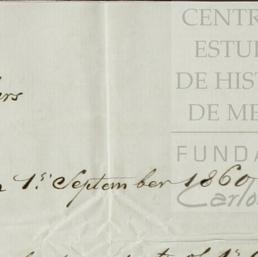 CENTR
ESTU
DE HIST
DE ME
FUNDA
Carlos
rs
1st September 1860
of 1st